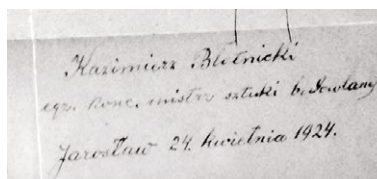 Kazimierz Błotnicki
egz. konc. mistrz sztuki budowlanej
Jarosław 24. kwietnia 1924.